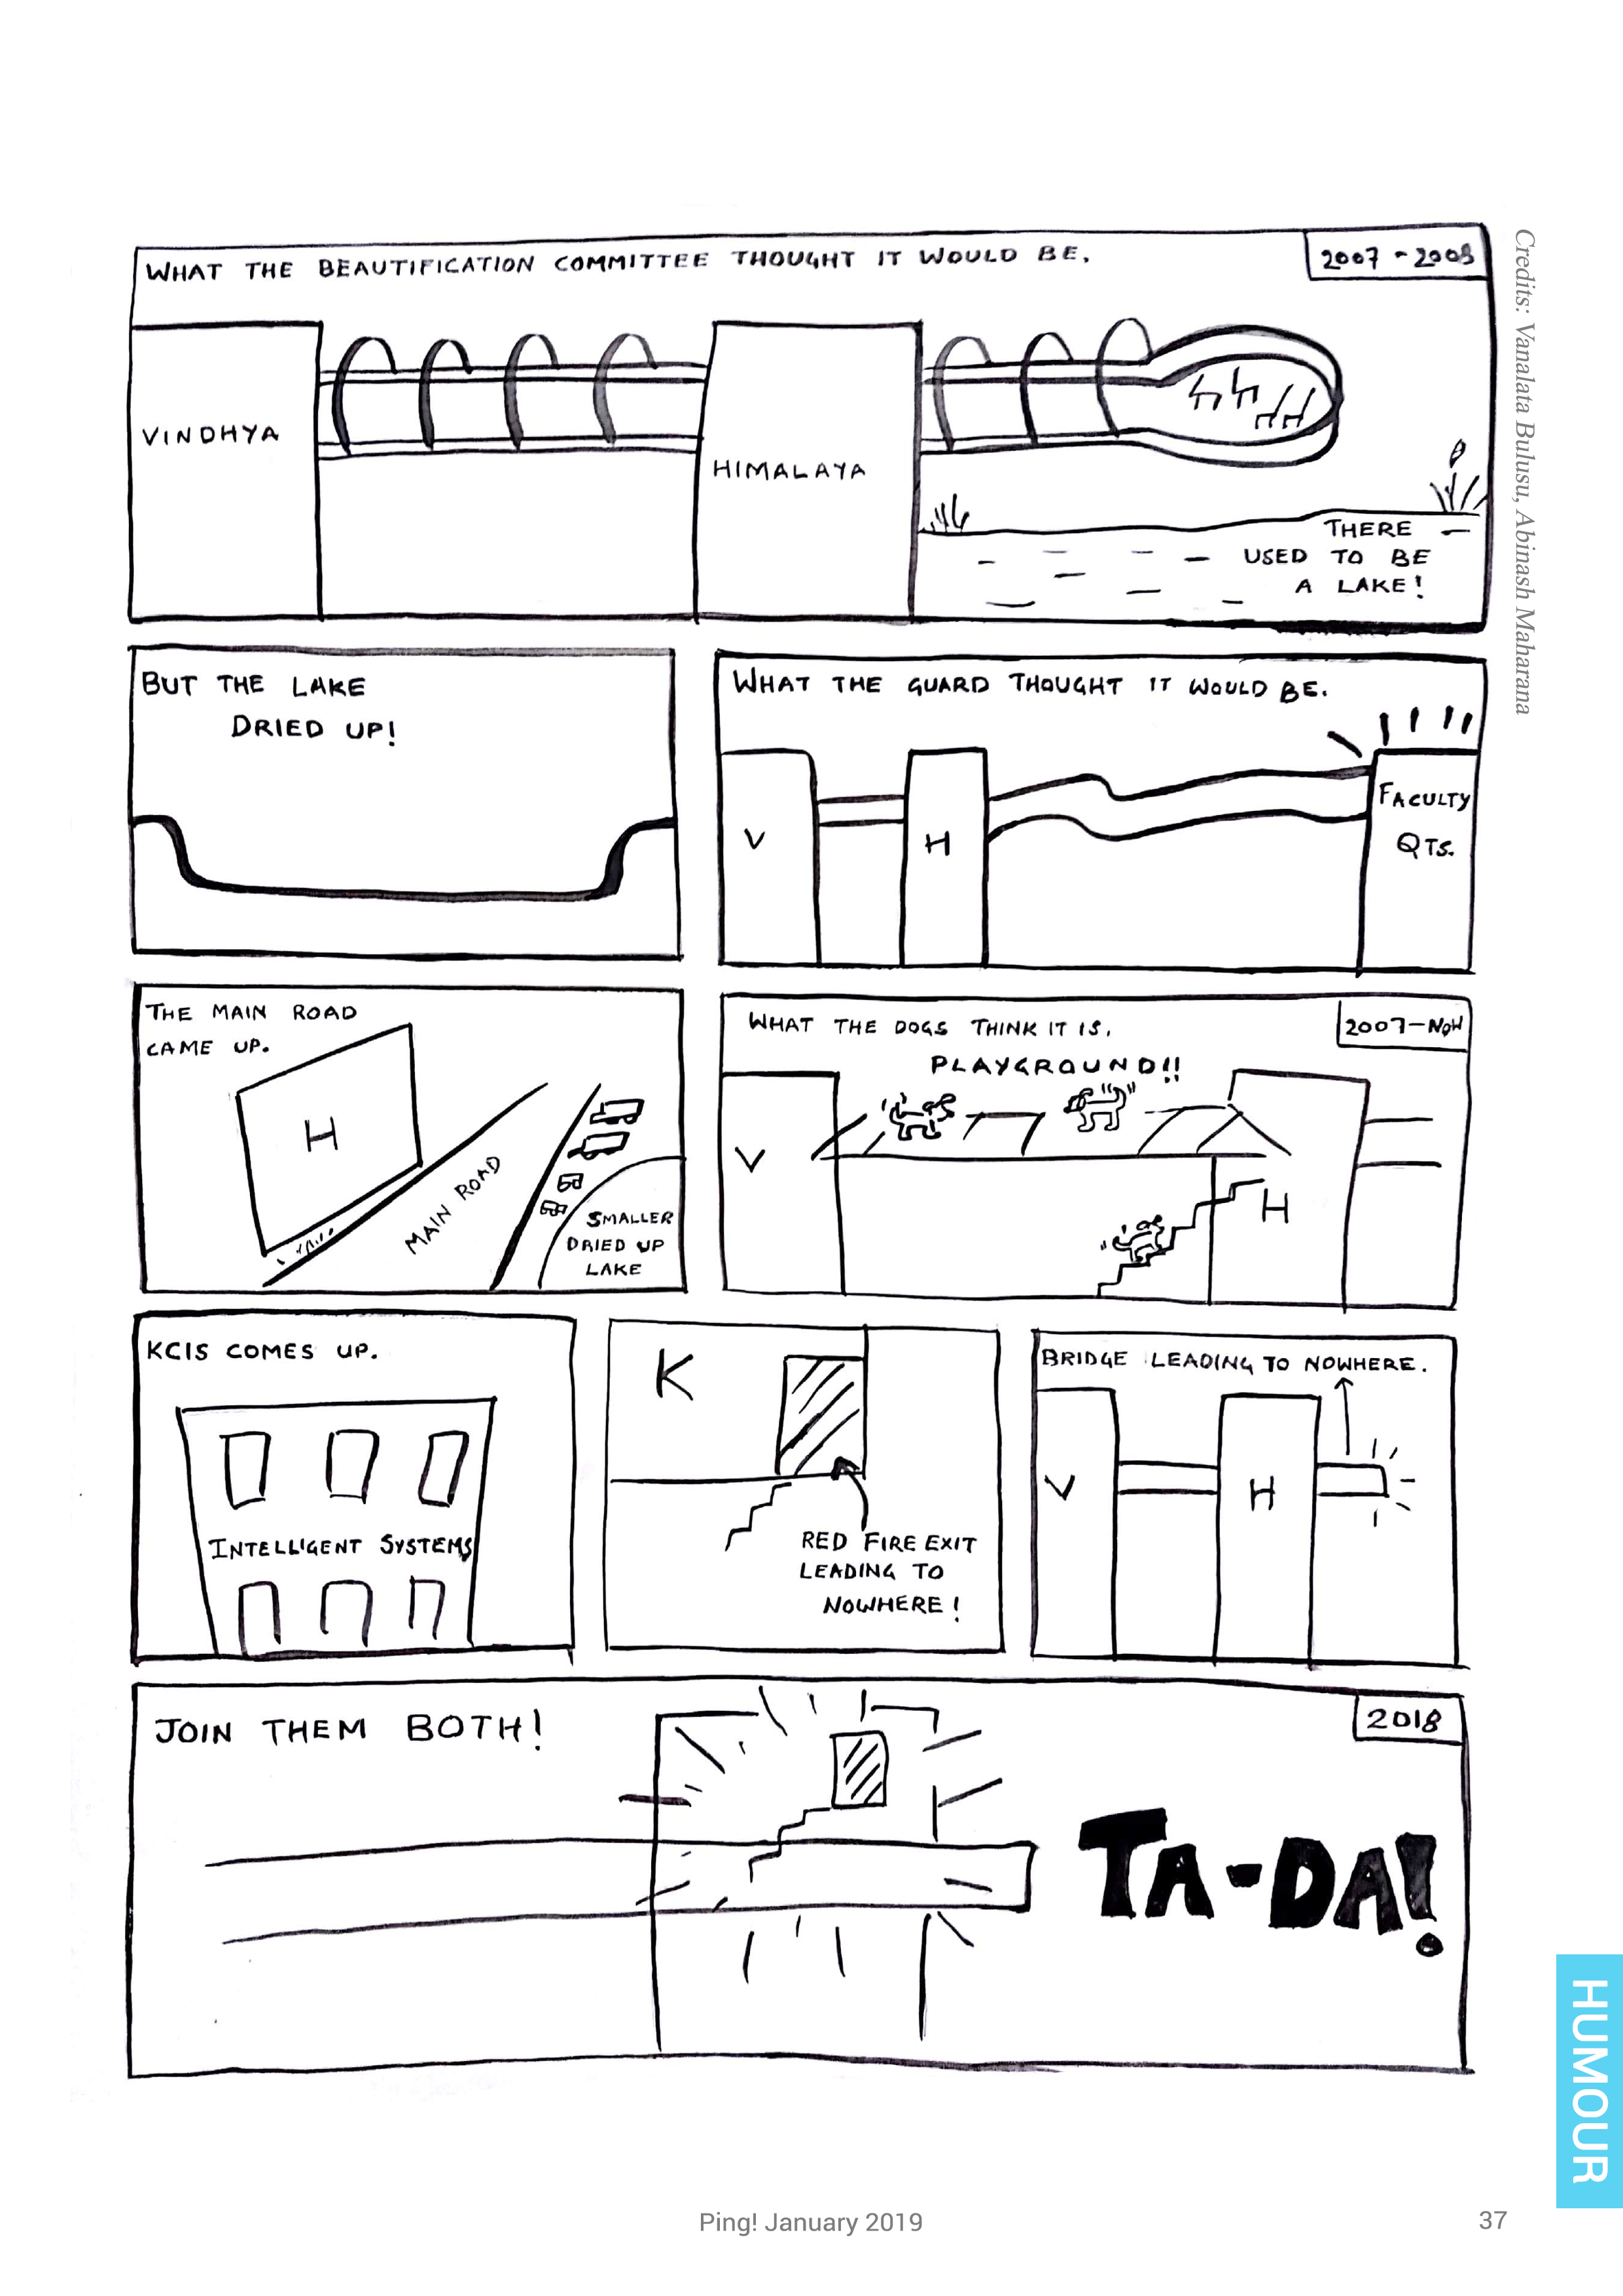 WHAT THE BEAUTIFICATION COMMITTEE THOUGHT IT WOULD BE.
2007 - 2008
VINDHYA
HIMALAYA
THERE
USED TO BE
A LAKE!
BUT THE LAKE
DRIED UP!
WHAT THE GUARD THOUGHT IT WOULD BE.
V
H
FACULTY
QTS.
THE MAIN ROAD
CAME UP.
H
MAIN ROAD
SMALLER
DRIED UP
LAKE
WHAT THE DOGS THINK IT IS.
2007-NOW
PLAYGROUND!!
V
H
KCIS COMES UP.
INTELLIGENT SYSTEMS
K
RED FIRE EXIT
LEADING TO
NOWHERE!
BRIDGE LEADING TO NOWHERE.
V
H
JOIN THEM BOTH!
2018
TA-DA!
Credits: Vanalata Bulusu, Abinash Maharana
HUMOUR
Ping! January 2019
37